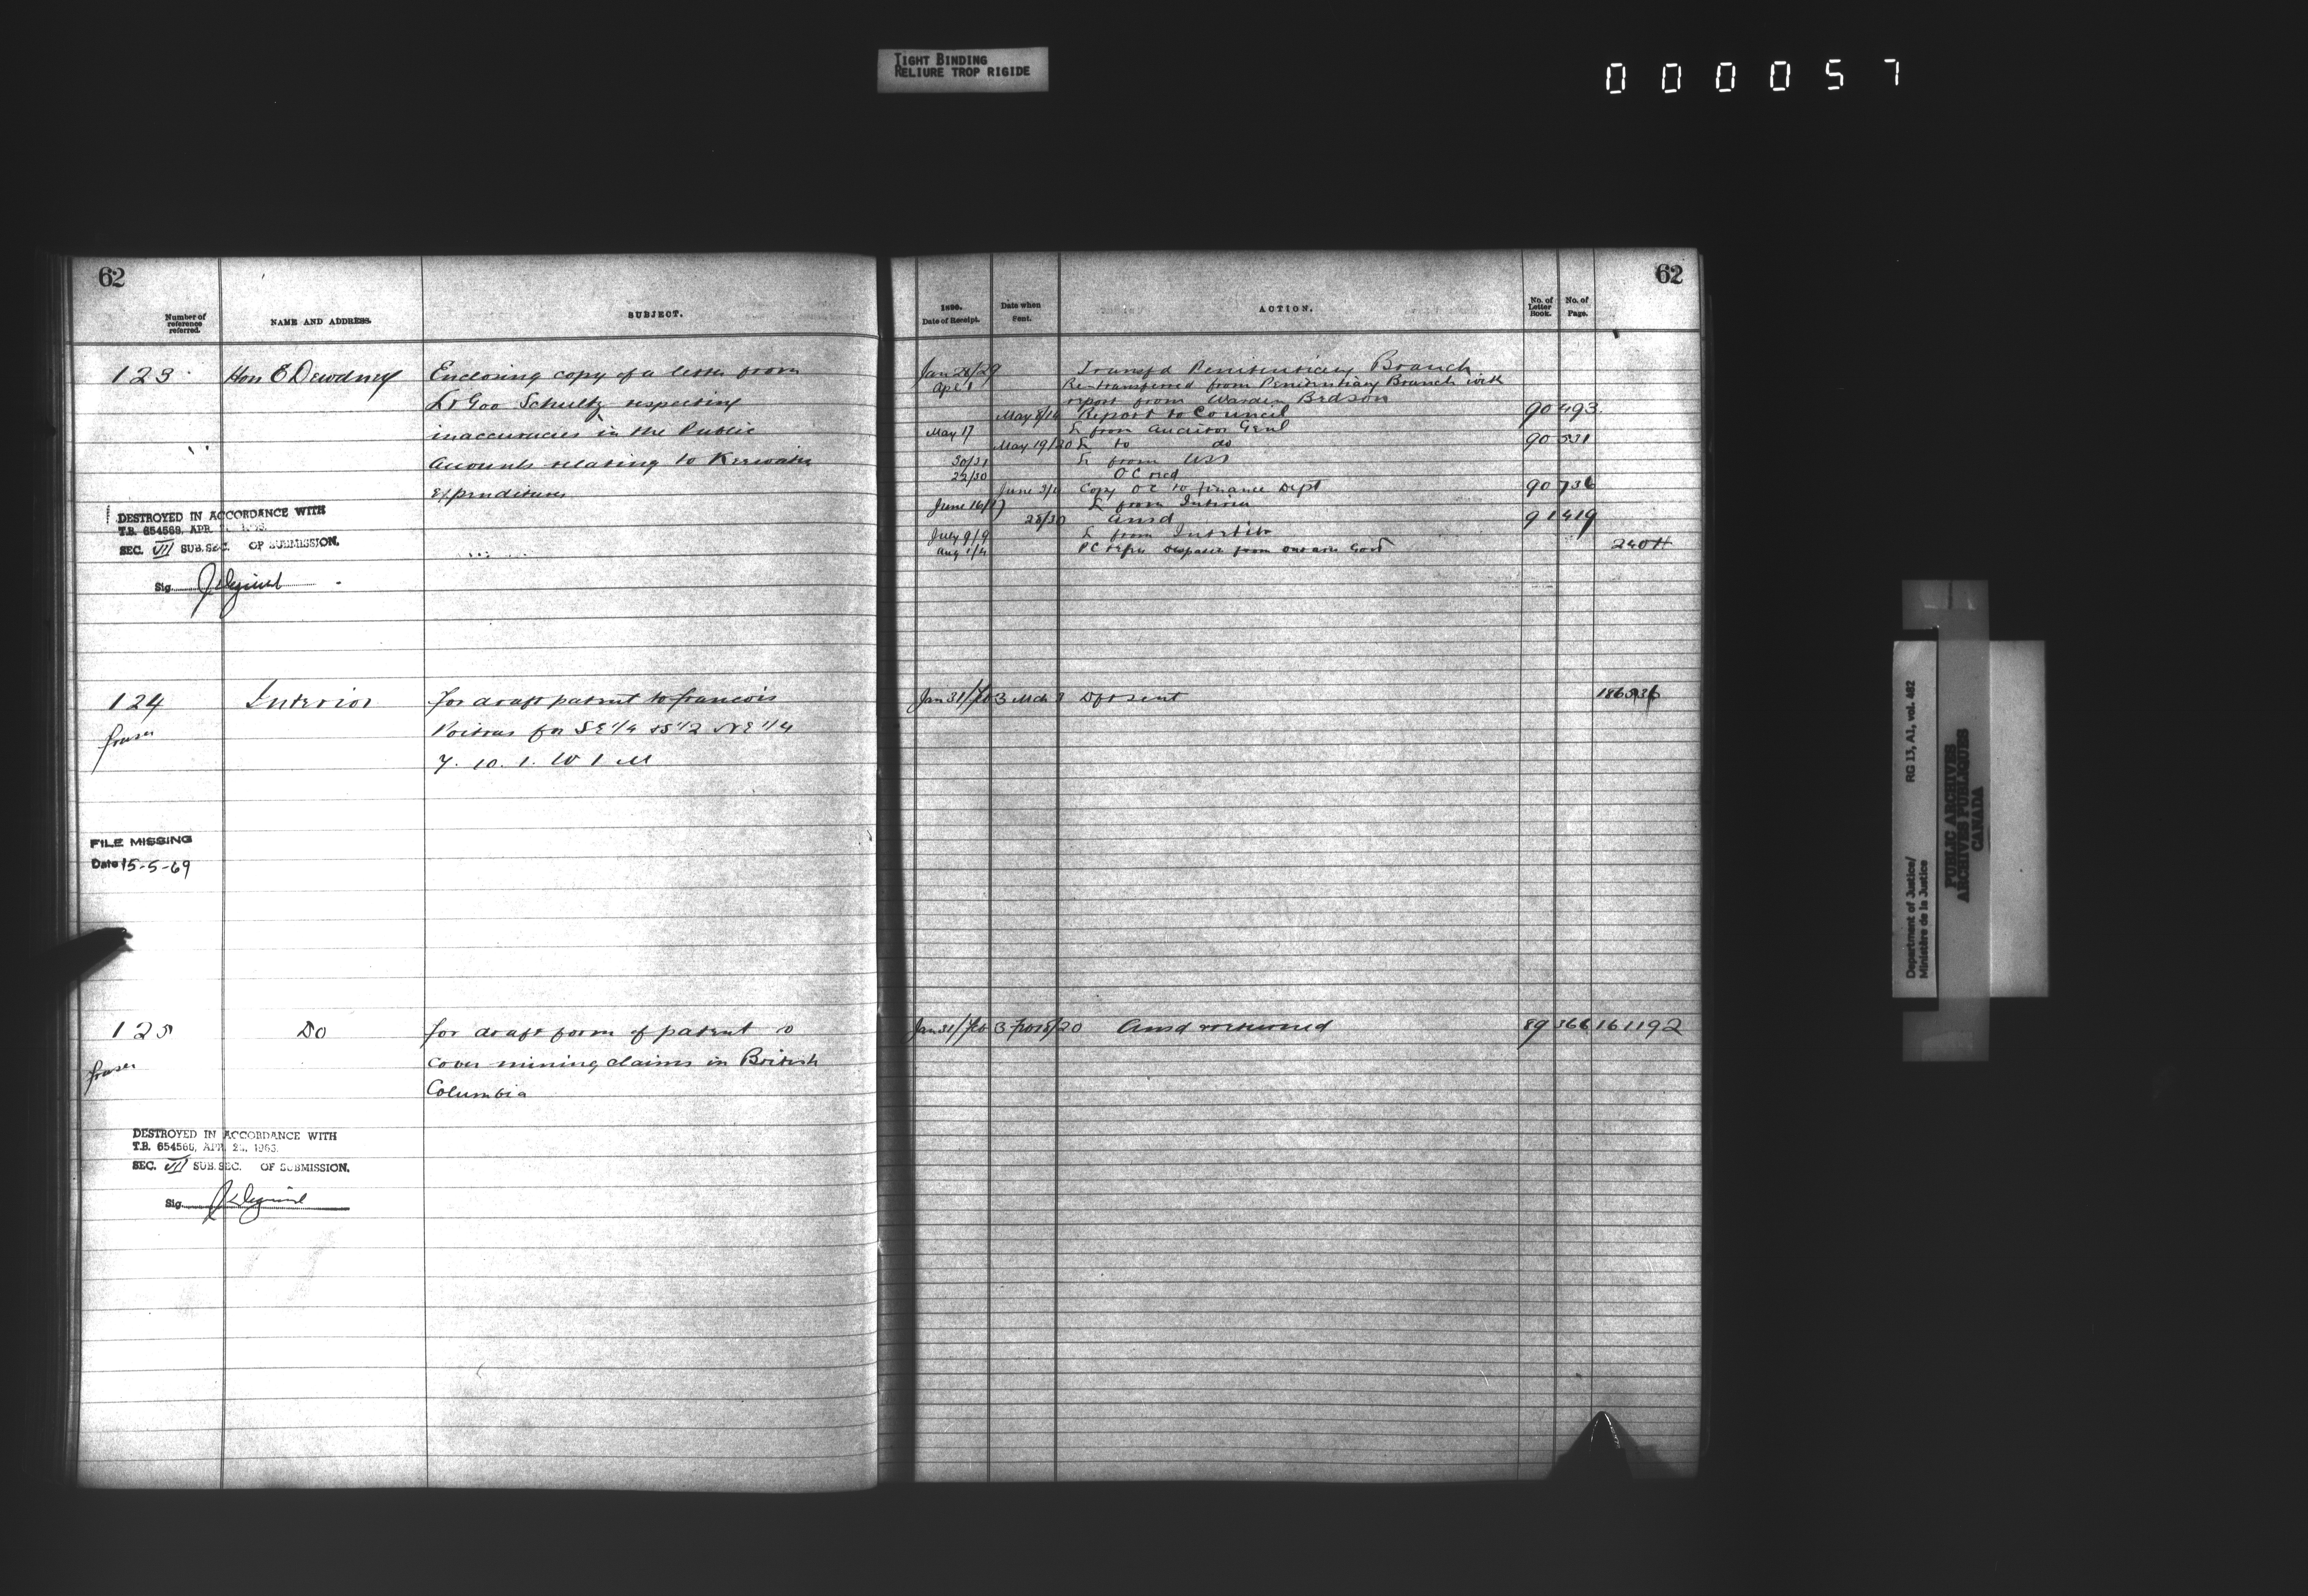 TIGHT BINDING
RELIURE TROP RIGIDE
000057
62
Number of reference referred.
NAME AND ADDRESS.
SUBJECT.
123
Hon E Dewdney
Enclosing copy of a letter from
Lt Gov Schultz respecting
inaccuracies in the Public
Accounts relating to Keewatin
Expenditures
DESTROYED IN ACCORDANCE WITH
T.B. 654568, APR.
SEC. VII SUB.SEC. OF SUBMISSION.
Sig.
124
Interior
for draft patent to francois
Poitras for SE 1/4 & S 1/2 NE 1/4
7. 10. 1. W 1 M
fraser
FILE MISSING
Date 15-5-69
125
Do
for draft form of patent to
cover mining claims in British
Columbia
fraser
DESTROYED IN ACCORDANCE WITH
T.B. 654568, APR. 1963.
SEC. VII SUB.SEC. OF SUBMISSION.
Sig.
62
1890.
Date of Receipt.
Date when Sent.
ACTION.
No. of Letter Book.
No. of Page.
Jan 28/29 Transfd Penitentiary Branch
Apl 1 Re-transferred from Penitentiary Branch with
report from Warden Bedson
May 8/16 Report to Council 90 493
May 17 L from Auditor Genl
May 19/20 L to do 90 531
30/31 L from
29/30 OC recd
June Copy OC to finance Dept 90 736
June 16/17 L from Interior
28/30 ansd 91 419
July 9/9 L from Interior
Aug 1/4 PC refer despatch from Govt
Jan 31/feb 3 Mch Dft sent
Jan 31/feb 3 20 Ansd returned 89 366 161192
Department of Justice/
Ministère de la Justice
RG 13, A1, vol. 462
PUBLIC ARCHIVES
ARCHIVES PUBLIQUES
CANADA